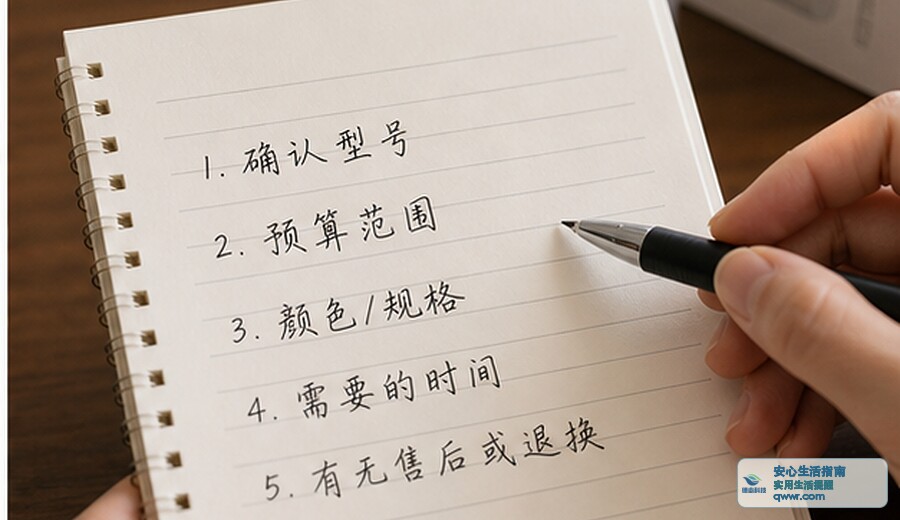 1. 确认型号
2. 预算范围
3. 颜色/规格
4. 需要的时间
5. 有无售后或退换
安心生活指南
实用生活提醒
qwwr.com